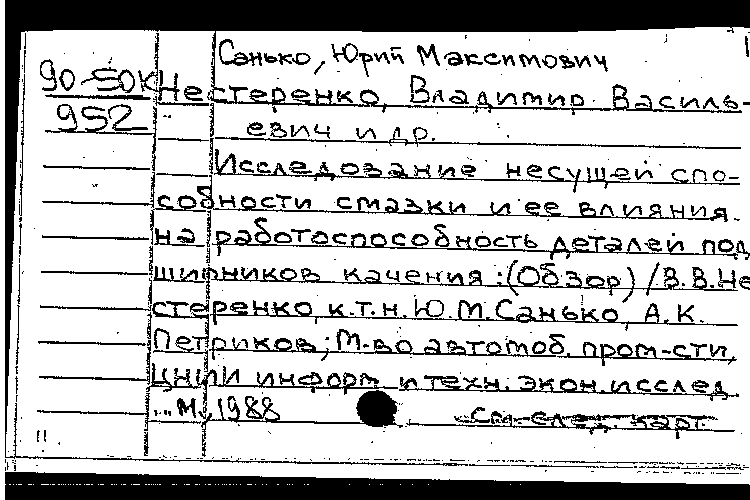 Санько, Юрий Максимович
90-50К Нестеренко, Владимир Василь-
952
евич и др.
Исследование несущей спо-
собности смазки и ее влияния
на работоспособность деталей под
шипников качения: (Обзор) / В.В. Не
стеренко, к.т.н. Ю.М. Санько, А.К.
Петриков; М-во автомоб. пром-сти,
ЦНИИ информ и техн. экон. исслед.
... М., 1988
см. след. карт.